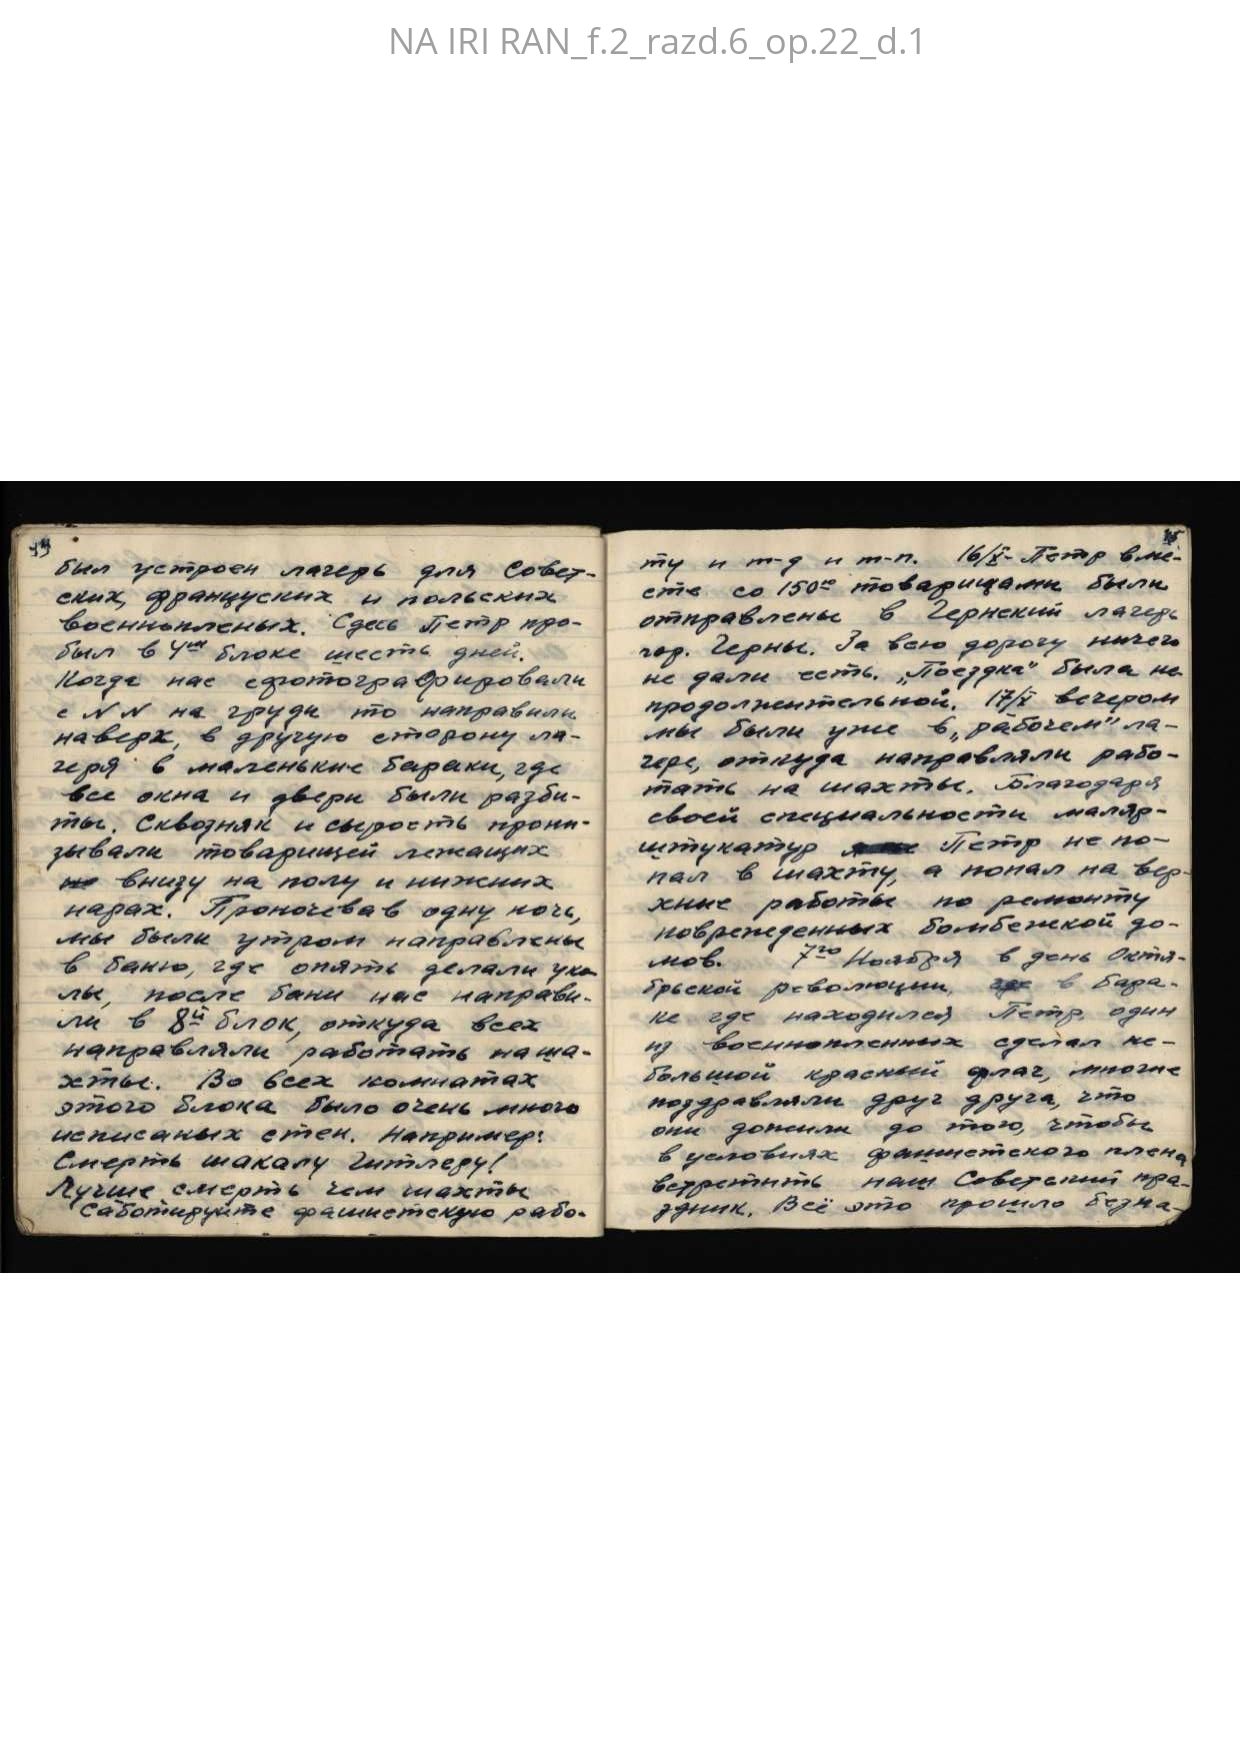 NA IRI RAN_f.2_razd.6_op.22_d.1
был устроен лагерь для Совет-
ских, француских и польских
военнопленых. Сдесь Петр про-
был в 4ом блоке шесть дней.
Когда нас сфотографировали
с N N на груди то направили
наверх, в другую сторону ла-
геря в маленькие бараки, где
все окна и двери были разби-
ты. Сквозняк и сырость прони-
зывали товарищей лежащих
внизу на полу и нижних
нарах. Проночевав одну ночь,
мы были утром направлены
в баню, где опять делали уко-
лы, после бани нас направи-
ли в 8й блок, откуда всех
направляли работать на ша-
хты. Во всех комнатах
этого блока было очень много
исписаных стен. Например:
Смерть шакалу Гитлеру!
Лучше смерть чем шахты
Саботируйте фашистскую рабо-
15
ту и т-д и т-п. 16/X- Петр вме-
сте со 150ю товарищами были
отправлены в Чернский лагерь
гор. Черны. За всю дорогу ничего
не дали есть. „Поездка" была не
продолжительной. 17/X вечером
мы были уже в „рабочем" ла-
гере, откуда направляли рабо-
тать на шахты. Благодаря
своей специальности маляр-
штукатур Петр не по-
пал в шахту, а попал на вер-
хние работы по ремонту
поврежденных бомбежкой до-
мов. 7го Ноября в день Октя-
брьской революции, в бара-
ке где находился Петр один
из военнопленных сделал не-
большой красный флаг, многие
поздравляли друг друга, что
они дожили до того, чтобы
в условиях фашистского плена
встретить наш Советский пра-
здник. Всё это прошло безна-